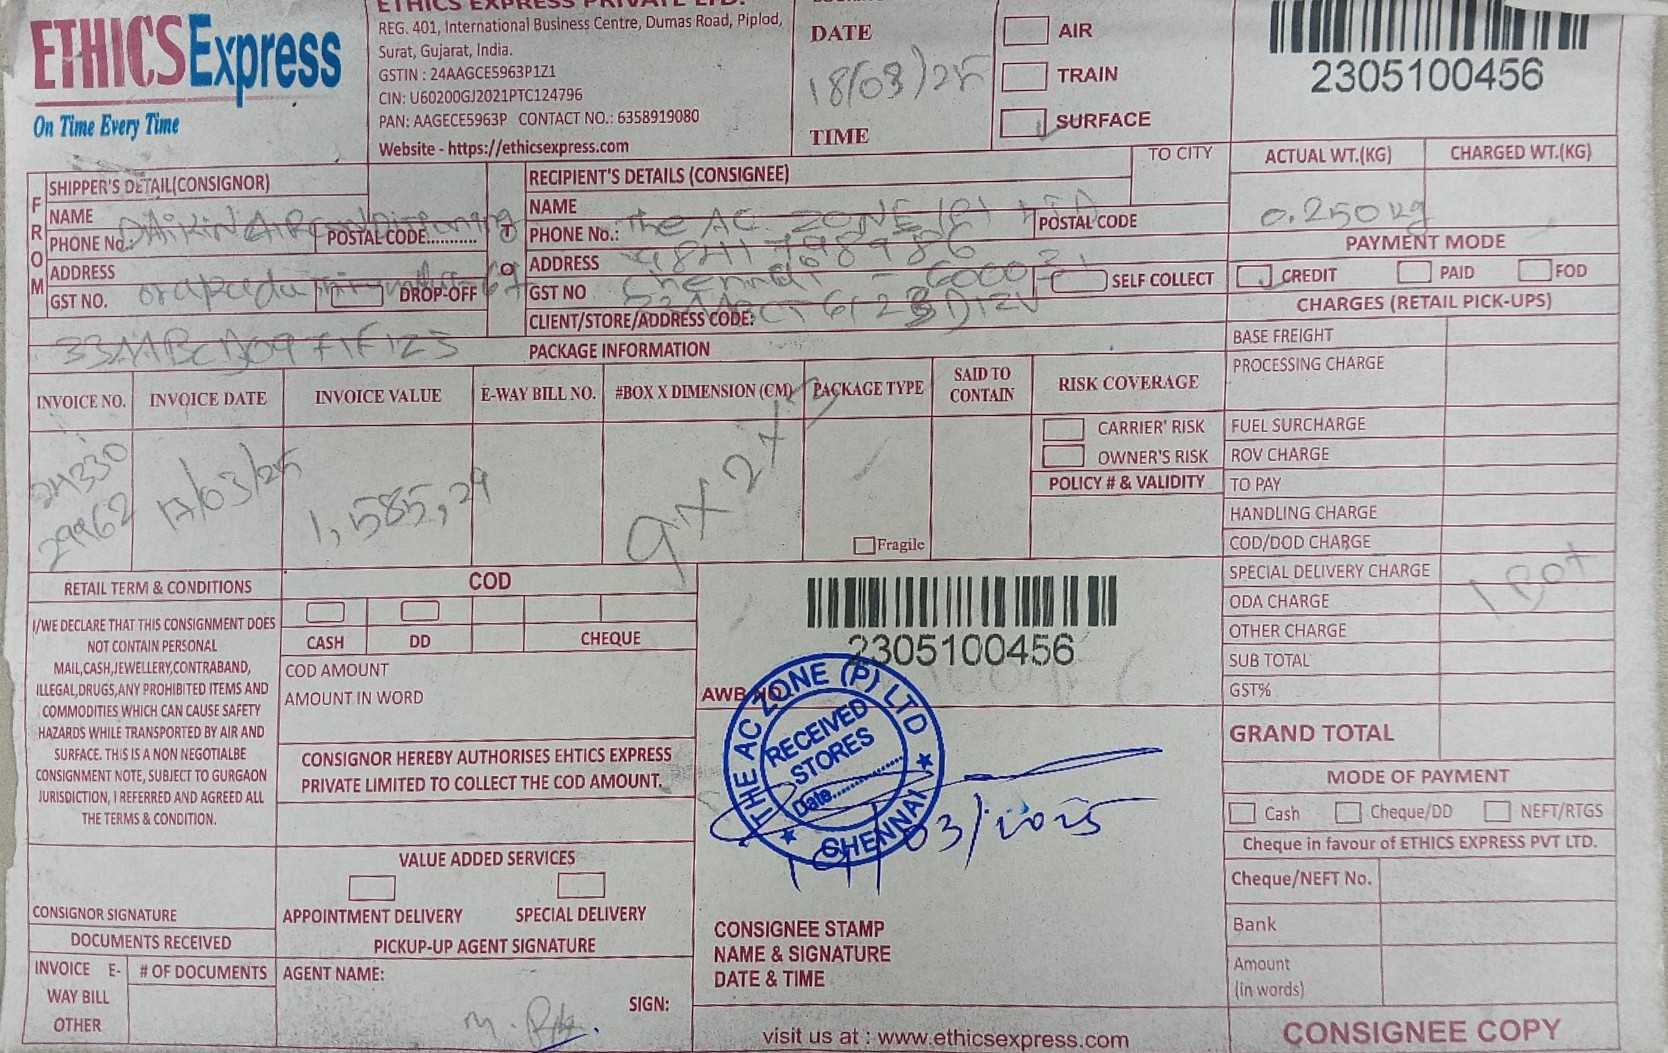 ETHICS Express
On Time Every Time
ETHICS EXPRESS PRIVATE LTD.
REG. 401, International Business Centre, Dumas Road, Piplod,
Surat, Gujarat, India.
GSTIN : 24AAGCE5963P1Z1
CIN: U60200GJ2021PTC124796
PAN: AAGECE5963P CONTACT NO.: 6358919080
Website - https://ethicsexpress.com
DATE
18/03/25
TIME
AIR
TRAIN
SURFACE
2305100456
FROM
SHIPPER'S DETAIL(CONSIGNOR)
NAME
DAIKIN AIRconditioning
PHONE No.:
POSTAL CODE...........
ADDRESS
GST NO.
DROP-OFF
TO
RECIPIENT'S DETAILS (CONSIGNEE)
TO CITY
NAME
The AC ZONE (P) LTD
PHONE No.:
POSTAL CODE
ADDRESS
Chennai -
GST NO
SELF COLLECT
CLIENT/STORE/ADDRESS CODE:
ACTUAL WT.(KG) CHARGED WT.(KG)
0.250 kg
PAYMENT MODE
CREDIT PAID FOD
CHARGES (RETAIL PICK-UPS)
BASE FREIGHT
PROCESSING CHARGE
FUEL SURCHARGE
ROV CHARGE
TO PAY
HANDLING CHARGE
COD/DOD CHARGE
SPECIAL DELIVERY CHARGE
ODA CHARGE
1 Box
OTHER CHARGE
SUB TOTAL
GST%
GRAND TOTAL
PACKAGE INFORMATION
INVOICE NO. INVOICE DATE INVOICE VALUE E-WAY BILL NO. #BOX X DIMENSION (CM) PACKAGE TYPE SAID TO CONTAIN RISK COVERAGE
24330
29962
17/03/25
1,585,29
CARRIER' RISK
OWNER'S RISK
POLICY # & VALIDITY
Fragile
RETAIL TERM & CONDITIONS
I/WE DECLARE THAT THIS CONSIGNMENT DOES
NOT CONTAIN PERSONAL
MAIL,CASH,JEWELLERY,CONTRABAND,
ILLEGAL,DRUGS,ANY PROHIBITED ITEMS AND
COMMODITIES WHICH CAN CAUSE SAFETY
HAZARDS WHILE TRANSPORTED BY AIR AND
SURFACE. THIS IS A NON NEGOTIALBE
CONSIGNMENT NOTE, SUBJECT TO GURGAON
JURISDICTION, I REFERRED AND AGREED ALL
THE TERMS & CONDITION.
CONSIGNOR SIGNATURE
DOCUMENTS RECEIVED
INVOICE E-
WAY BILL
OTHER
# OF DOCUMENTS
COD
CASH DD CHEQUE
COD AMOUNT
AMOUNT IN WORD
CONSIGNOR HEREBY AUTHORISES EHTICS EXPRESS
PRIVATE LIMITED TO COLLECT THE COD AMOUNT.
VALUE ADDED SERVICES
APPOINTMENT DELIVERY SPECIAL DELIVERY
PICKUP-UP AGENT SIGNATURE
AGENT NAME:
SIGN:
2305100456
AWB NO.
THE AC ZONE (P) LTD
RECEIVED
STORES
Date...............
CHENNAI
19/03/2025
CONSIGNEE STAMP
NAME & SIGNATURE
DATE & TIME
visit us at : www.ethicsexpress.com
MODE OF PAYMENT
Cash Cheque/DD NEFT/RTGS
Cheque in favour of ETHICS EXPRESS PVT LTD.
Cheque/NEFT No.
Bank
Amount
(in words)
CONSIGNEE COPY